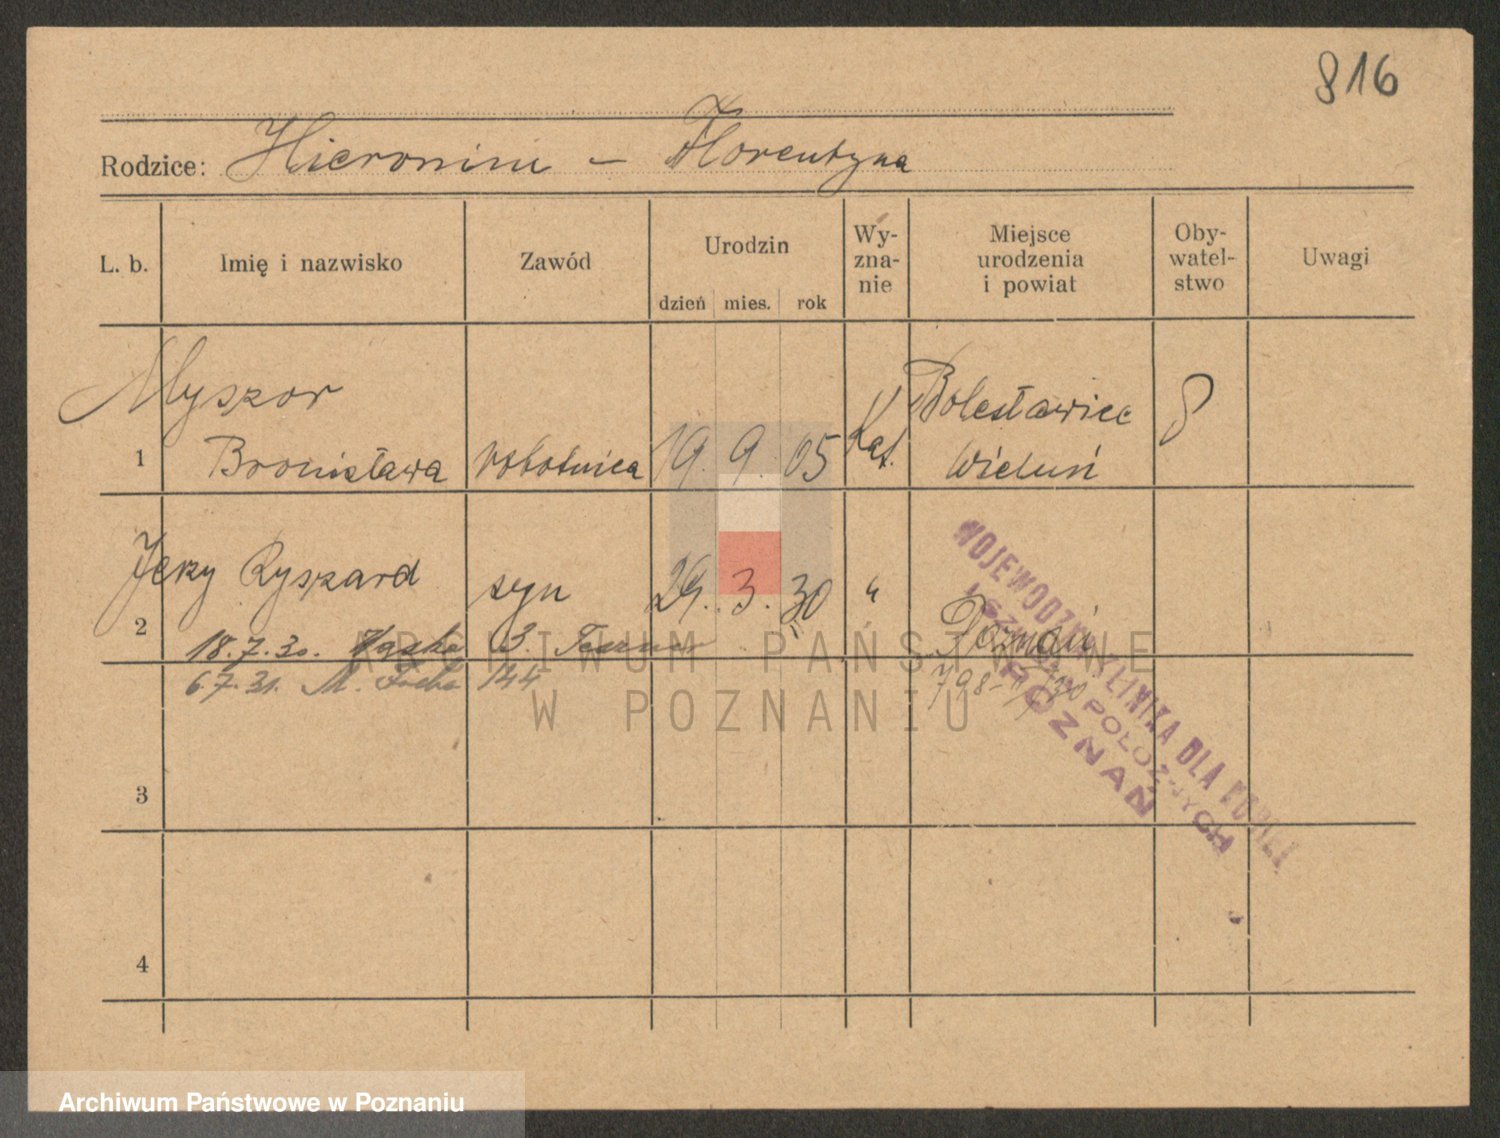 816
Rodzice: Hieronim – Florentyna
L. b. Imię i nazwisko Zawód Urodzin dzień mies. rok Wy-zna-nie Miejsce urodzenia i powiat Oby-watel-stwo Uwagi
Myszor
1 Bronisława robotnica 19. 9. 05 Kat. Bolesławiec
Wieluń
Jerzy Ryszard syn 29. 3. 30 "
2 Poznań
18.7.30. 3.
6.7.31. M. Focha 144
798
WOJEWÓDZKA KLINIKA DLA KOBIET
I POŁOŻNYCH
POZNAŃ
3
4
ARCHIWUM PAŃSTWOWE
W POZNANIU
Archiwum Państwowe w Poznaniu